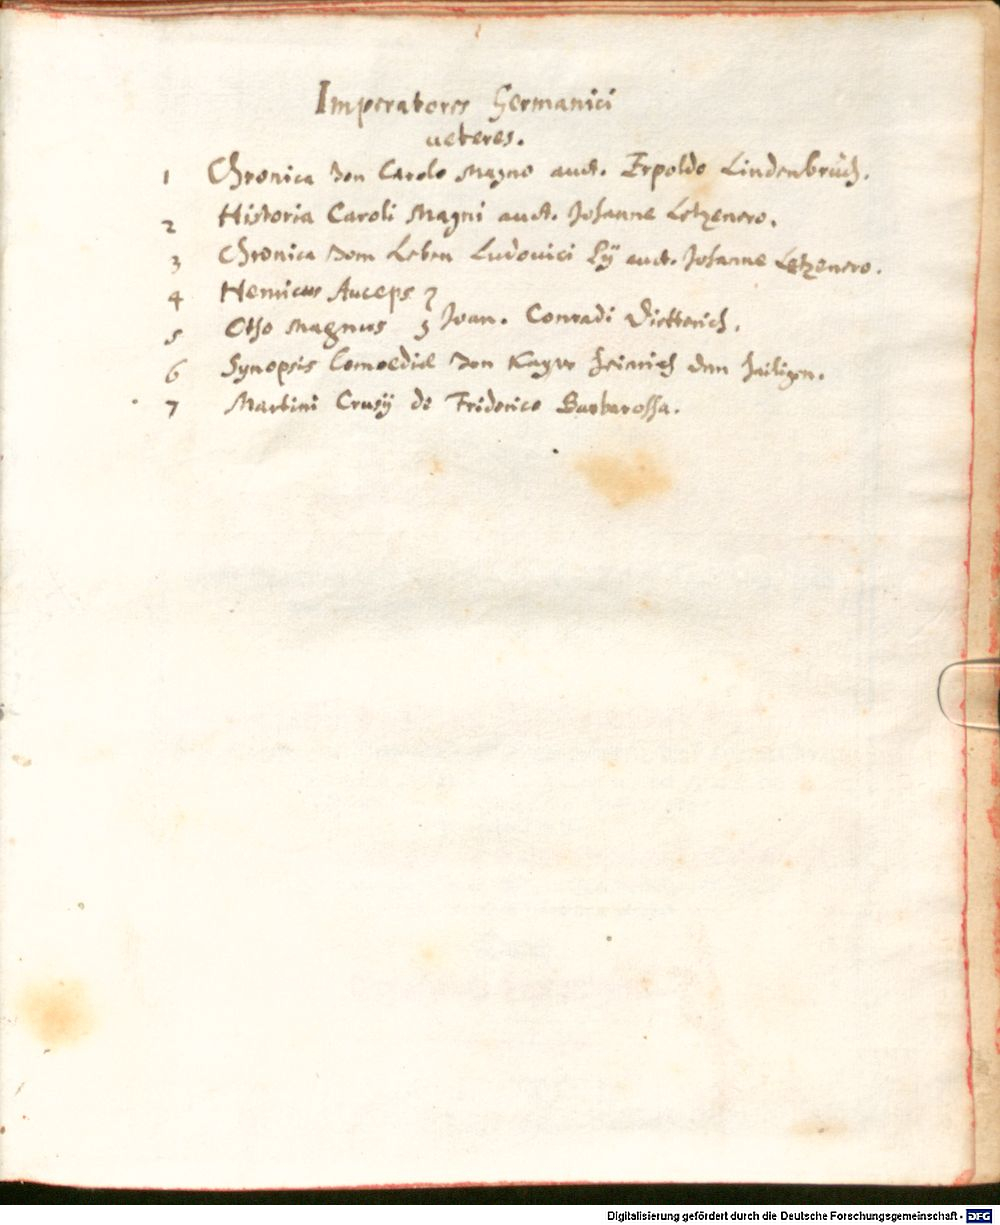 Imperatores Germanici
ueteres.
1 Chronica von Carolo Magno auct. Erpoldo Lindenbruch.
2 Historia Caroli Magni auct. Johanne Letzenero.
3 Chronica vom Leben Ludouici Pij auct. Johanne Letzenero.
4 Henricus Auceps
5 Otho Magnus } Joan. Conradi Dietterich.
6 Synopsis Comoediae von Kayser Heinrich dem heiligen.
7 Martini Crusij de Friderico Barbarossa.
Digitalisierung gefördert durch die Deutsche Forschungsgemeinschaft - DFG